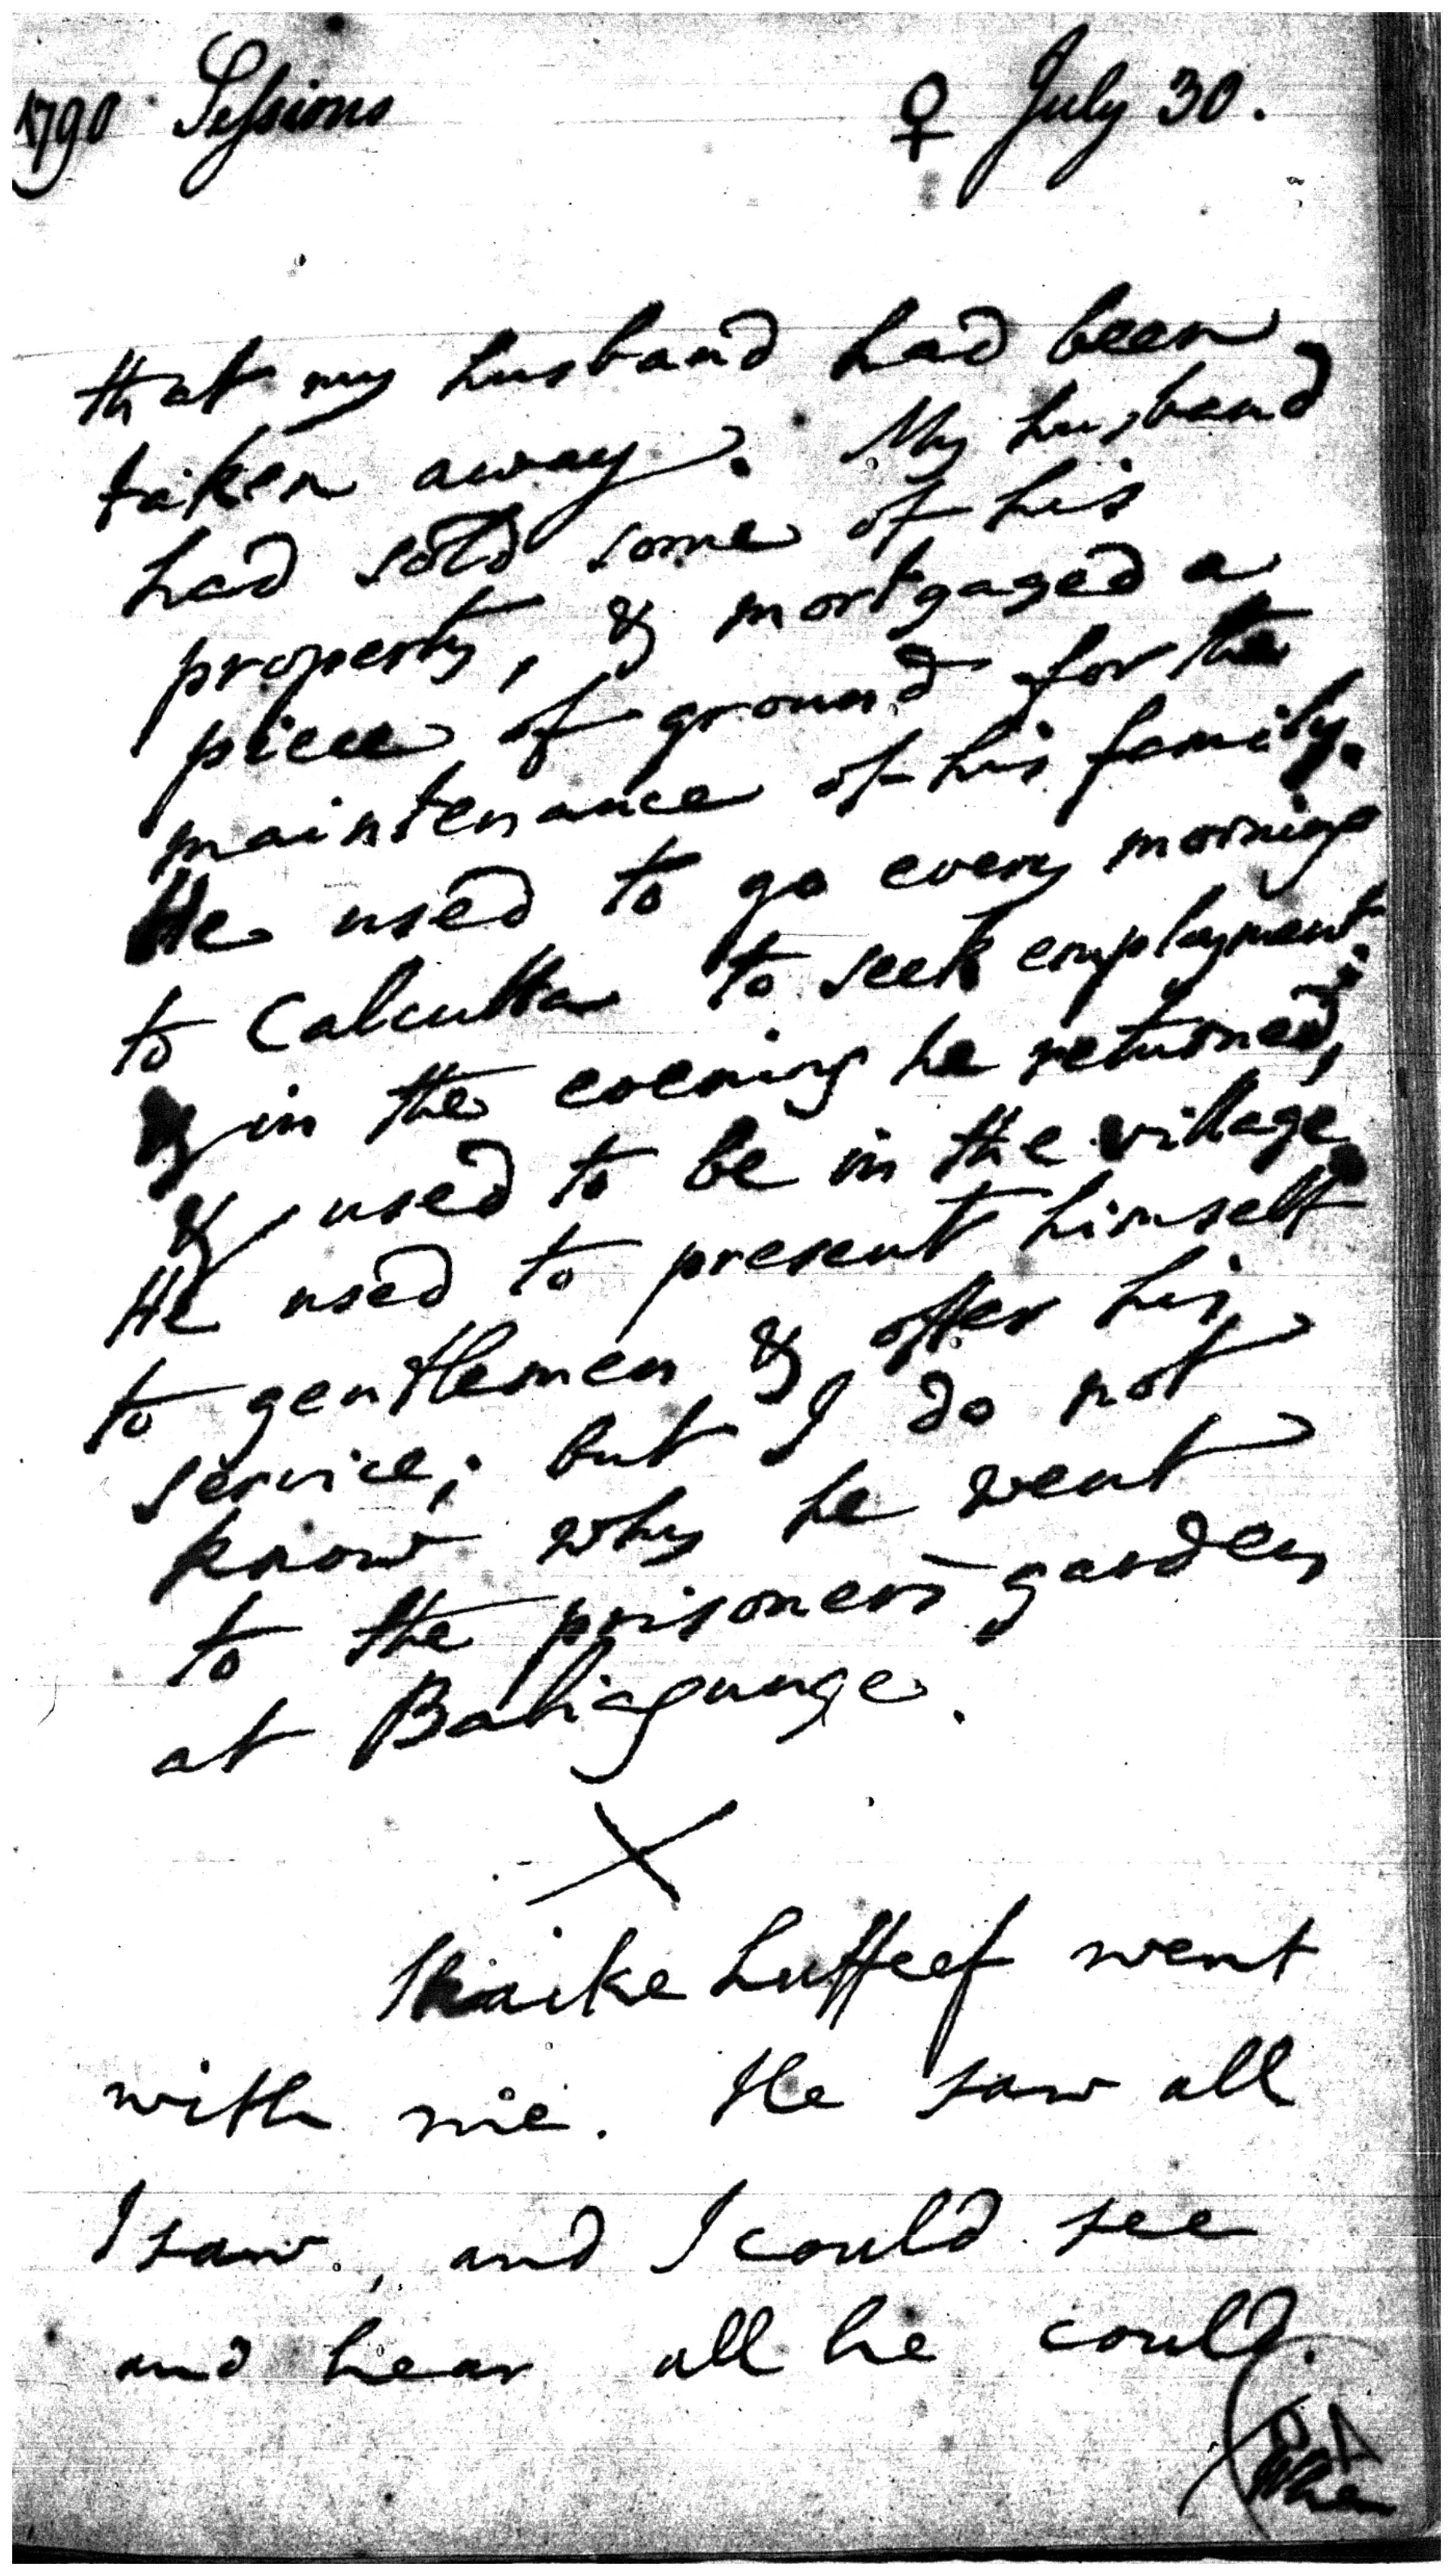 1790 Sessions ♀ July 30.
that my husband had been
taken away. My husband
had sold some of his
property, & mortgaged a
piece of ground for the
maintenance of his family.
He used to go every morning
to Calcutta to seek employment;
& in the evening he returned,
& used to be in the village.
He used to present himself
to gentlemen & offer his
service; but I do not
know why he went
to the prisoners garden
at Baliagunge.
Shaike Lutteef went
with me. He saw all
I saw, and I could see
and hear all he could.
When